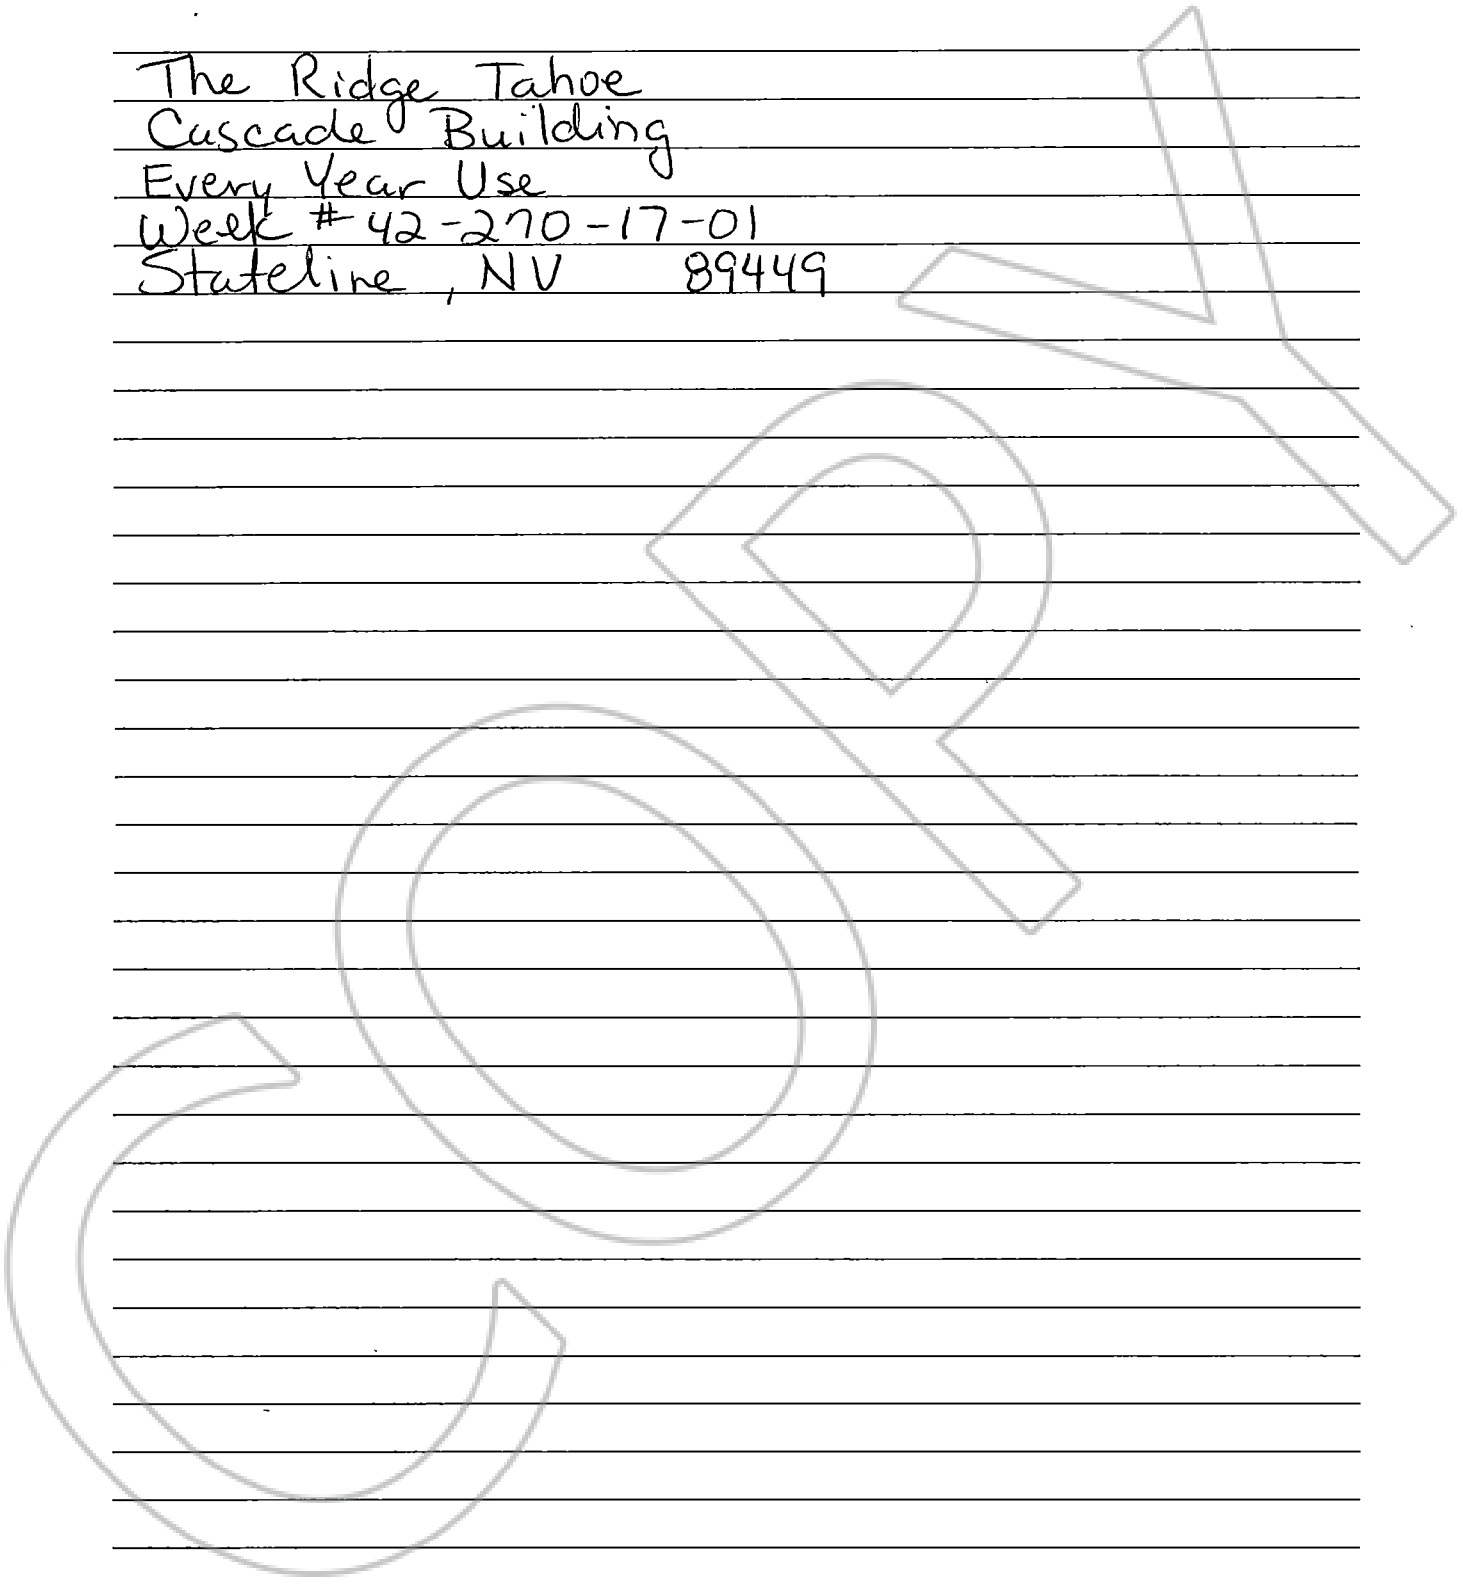 The Ridge Tahoe
Cascade Building
Every Year Use
Week # 42-270-17-01
Stateline, NV 89449
COPY